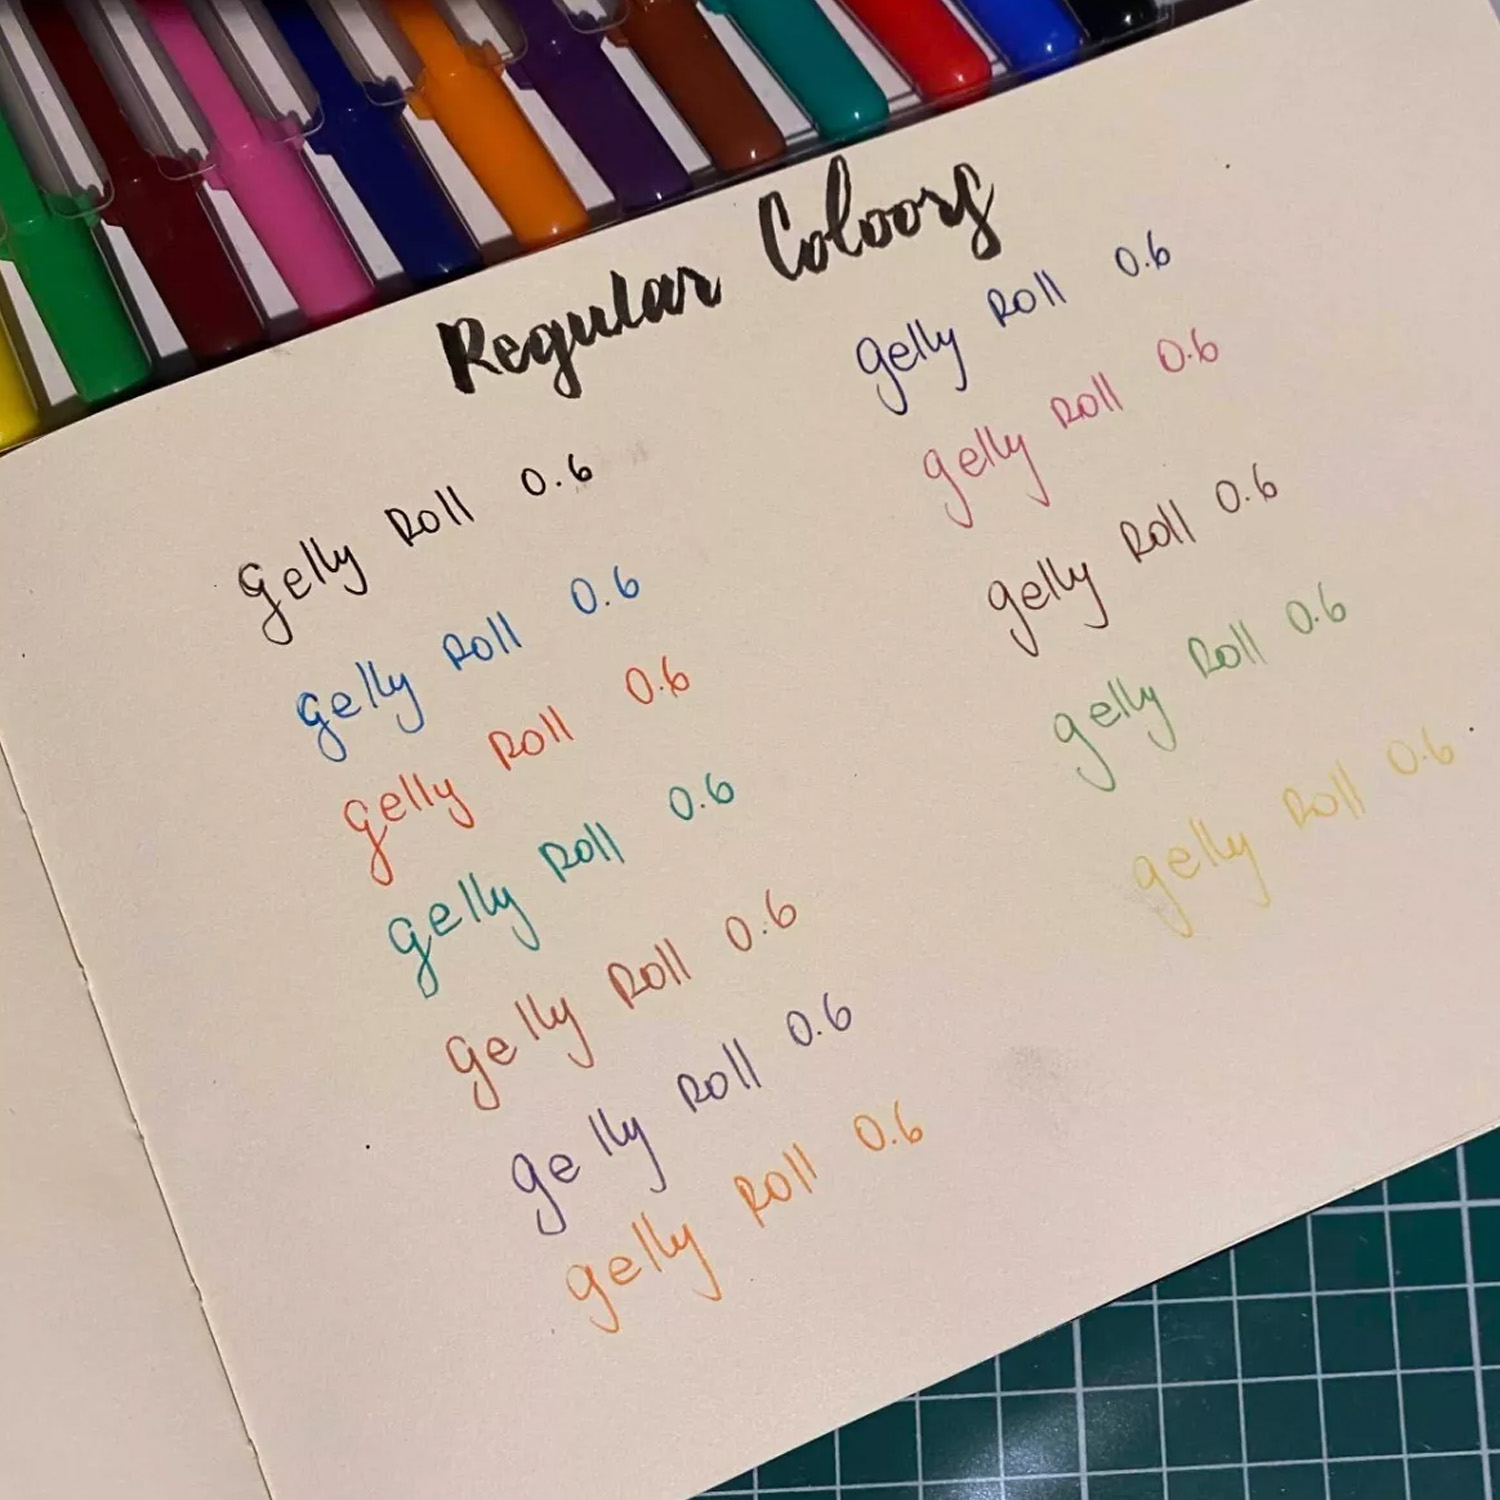 Regular Coloors
Gelly Roll 0.6
Gelly Roll 0.6
Gelly Roll 0.6
Gelly Roll 0.6
Gelly Roll 0.6
Gelly Roll 0.6
Gelly Roll 0.6
Gelly Roll 0.6
Gelly Roll 0.6
Gelly Roll 0.6
Gelly Roll 0.6
Gelly Roll 0.6